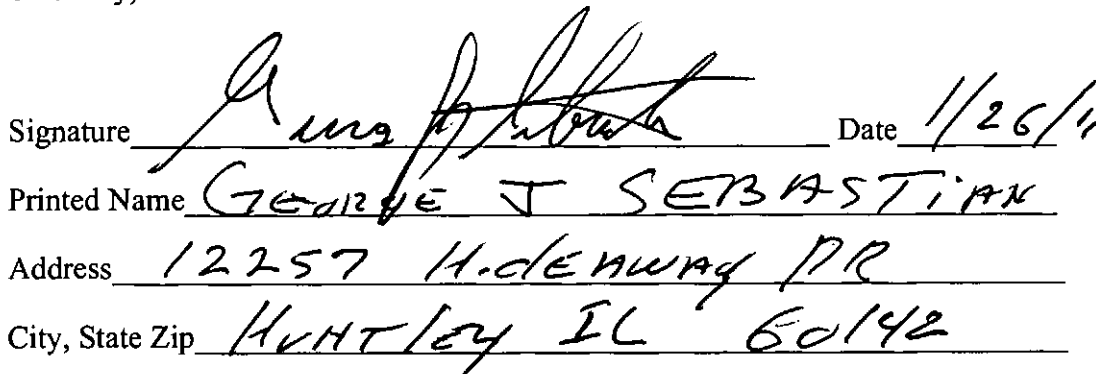 Signature Date 1/26/11
Printed Name GEORGE J SEBASTiAN
Address 12257 HidEAWAy DR
City, State Zip HUNTlEy IL 60142